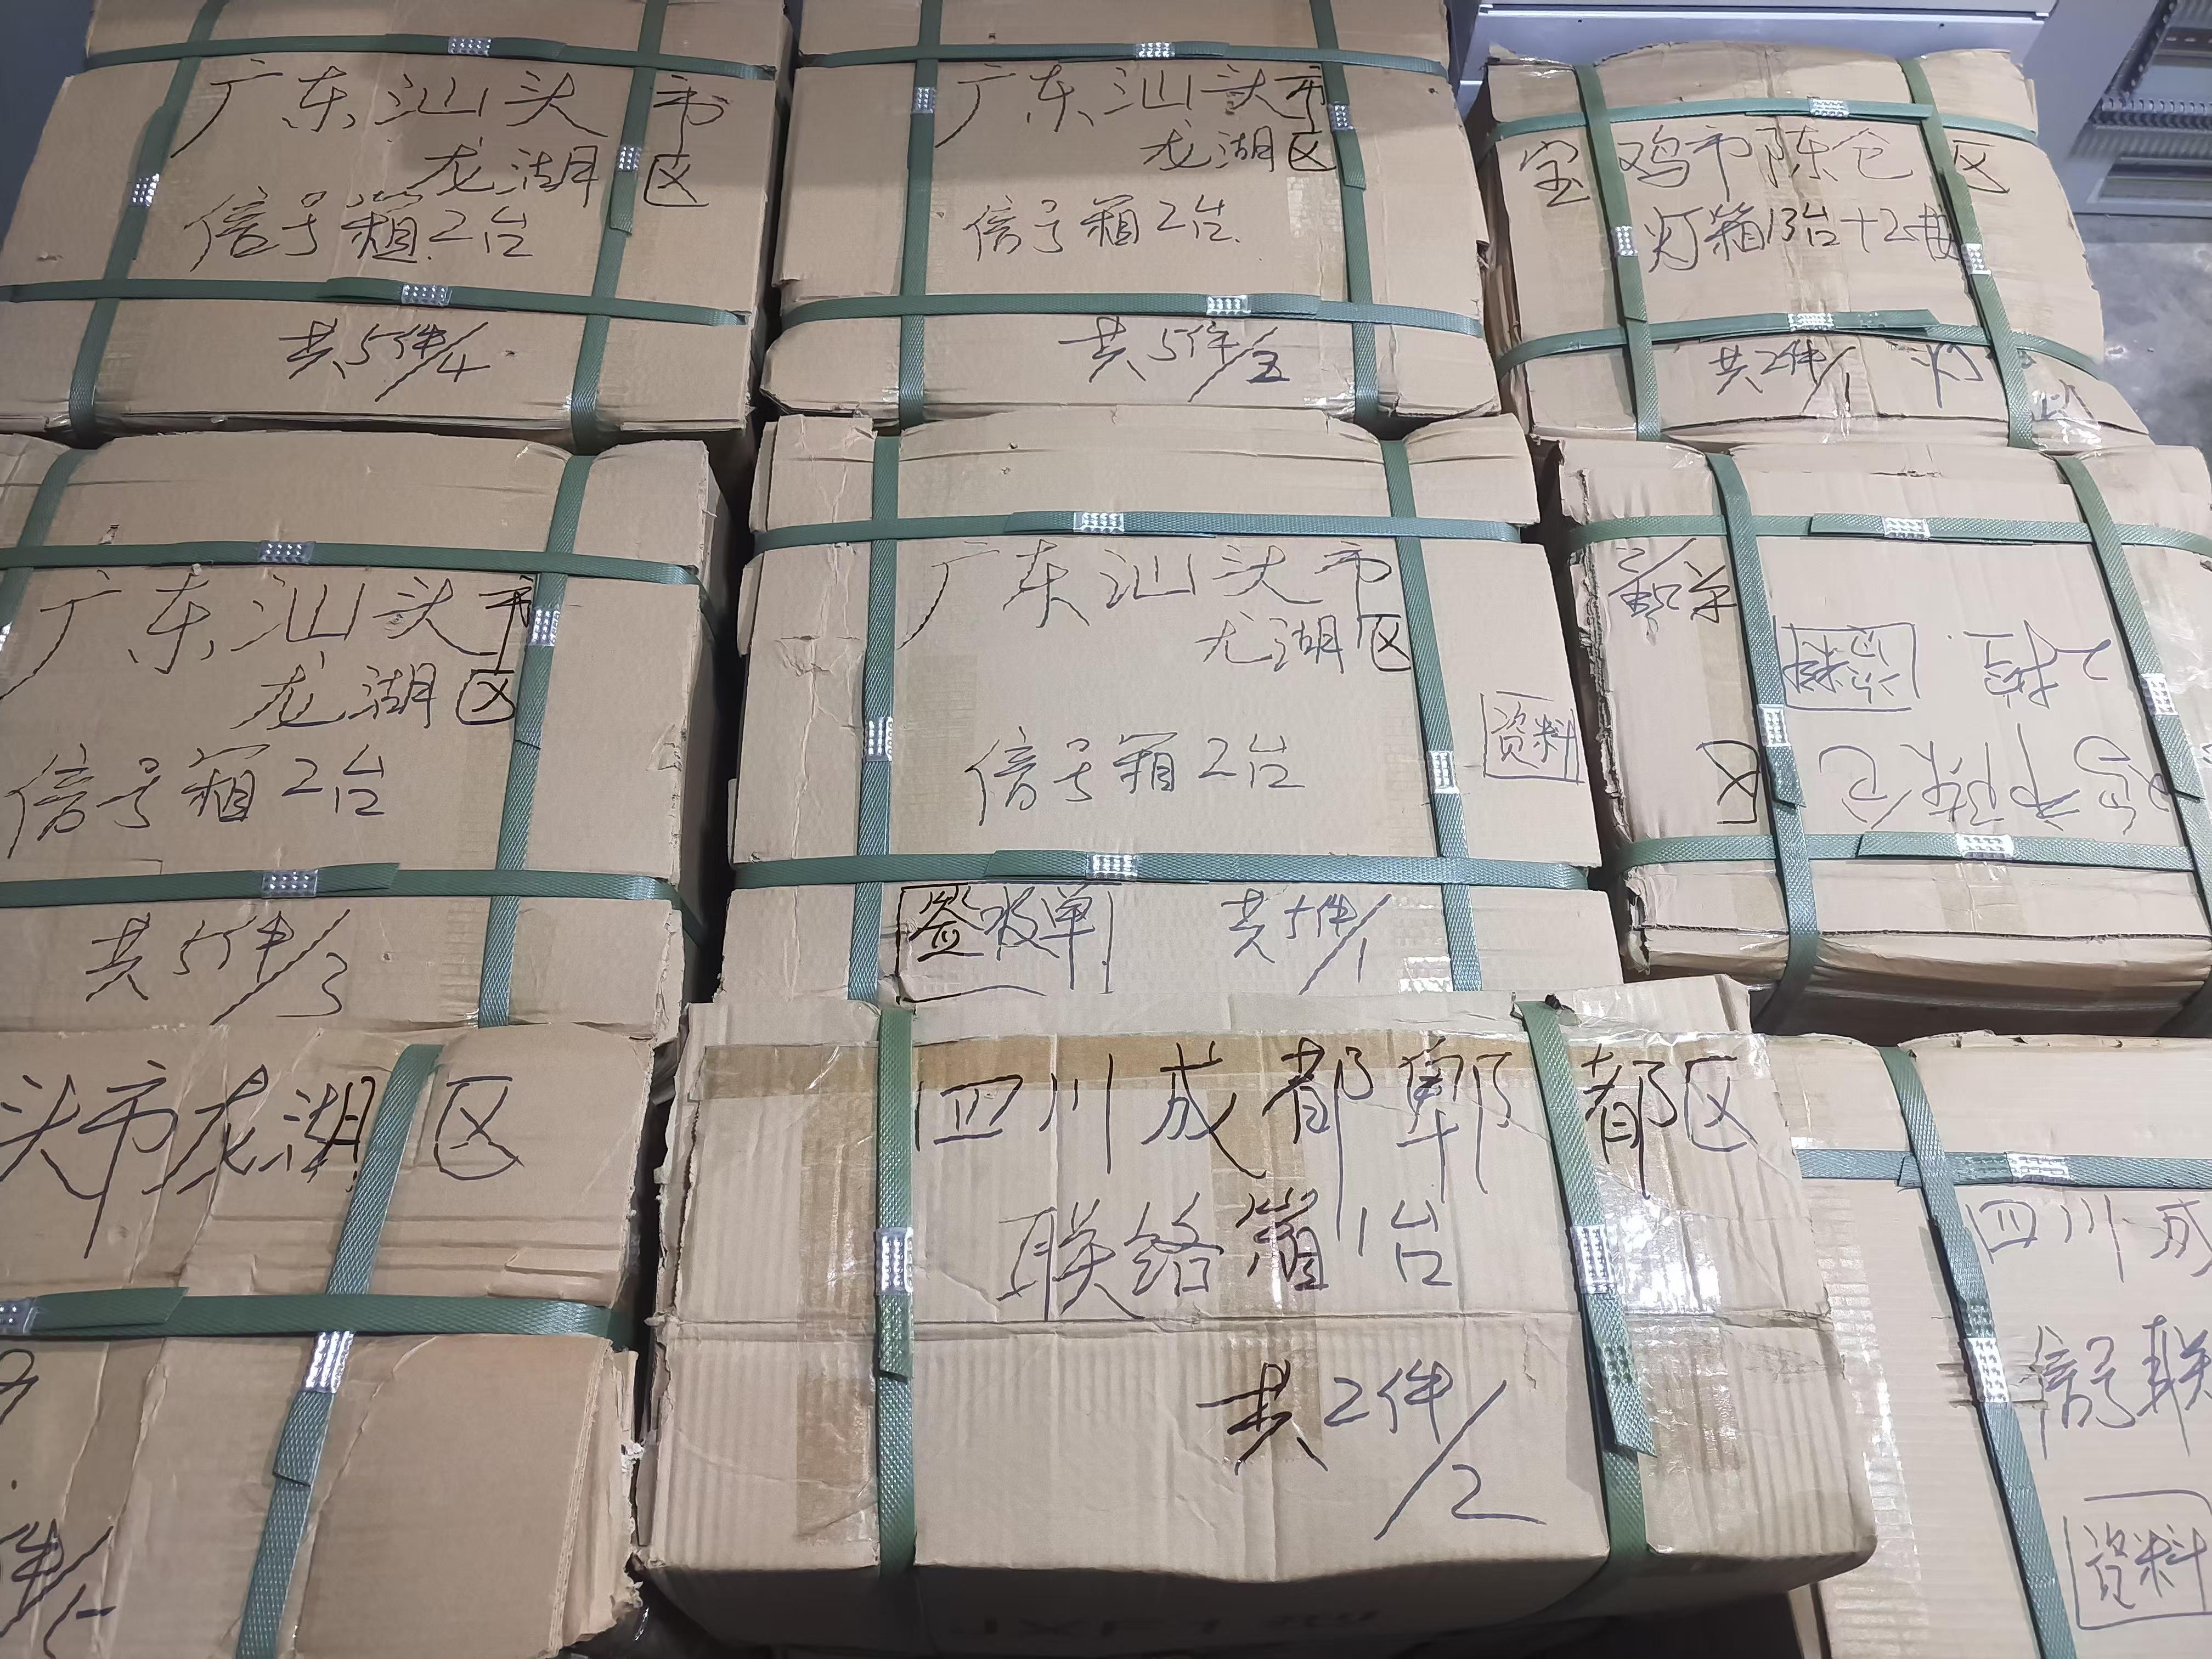 广东汕头市
龙湖区
信号箱2台
共5件/4
广东汕头市
龙湖区
信号箱2台
共5件/2
宝鸡市陈仓区
灯箱13台+2
共2件/1
广东汕头市
龙湖区
信号箱2台
共5件/3
广东汕头市
龙湖区
资料
信号箱2台
签收单
共5件/1
资料
鸡市陈仓区
头市龙湖区
件/5
四川成都郫都区
联络箱1台
共2件/2
四川成
信号联
资料